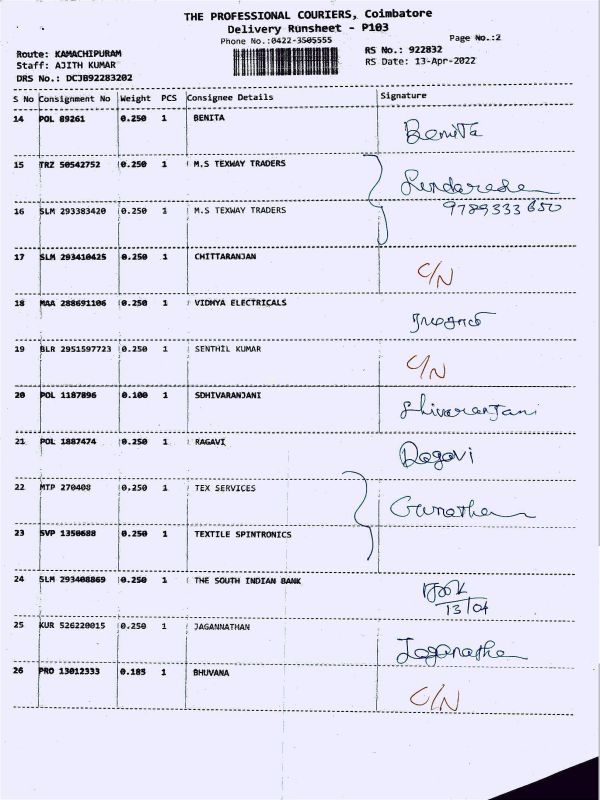 THE PROFESSIONAL COURIERS, Coimbatore
Delivery Runsheet - P103
Phone No.:0422-3505555
Page No.:2
Route: KAMACHIPURAM
RS No.: 922832
Staff: AJITH KUMAR
RS Date: 13-Apr-2022
DRS No.: DCJB92283202
S No Consignment No Weight PCS Consignee Details Signature
14 POL 89261 0.250 1 BENITA Benita
15 TRZ 50542752 0.250 1 M.S TEXWAY TRADERS
9789333650
16 SLM 293383420 0.250 1 M.S TEXWAY TRADERS
17 SLM 293410425 0.250 1 CHITTARANJAN C/N
18 MAA 288691106 0.250 1 VIDHYA ELECTRICALS
19 BLR 2951597723 0.250 1 SENTHIL KUMAR C/N
20 POL 1187896 0.100 1 SDHIVARANJANI Shivaranjani
21 POL 1887474 0.250 1 RAGAVI Ragavi
22 MTP 270408 0.250 1 TEX SERVICES
23 SVP 1350688 0.250 1 TEXTILE SPINTRONICS
24 SLM 293408869 0.250 1 THE SOUTH INDIAN BANK
13/04
25 KUR 526220015 0.250 1 JAGANNATHAN
26 PRO 13012333 0.185 1 BHUVANA C/N